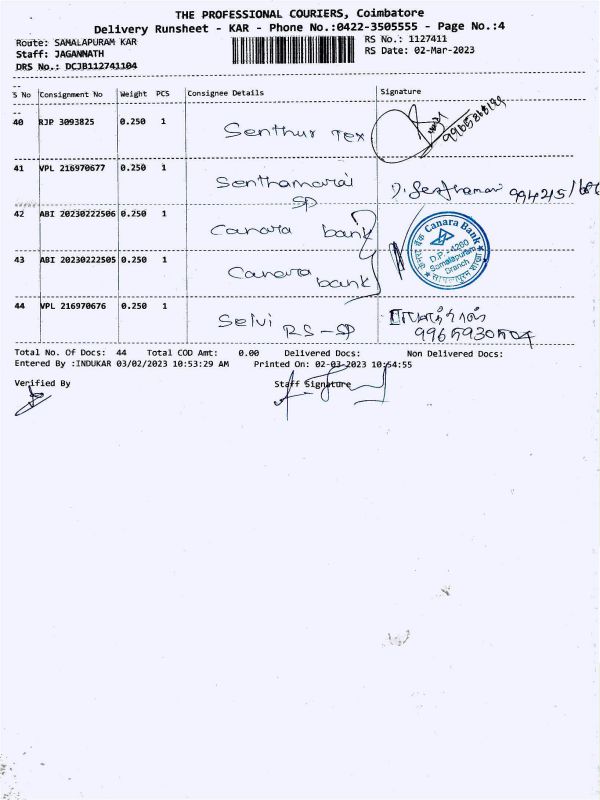 THE PROFESSIONAL COURIERS, Coimbatore
Delivery Runsheet - KAR - Phone No.:0422-3505555 - Page No.:4
Route: SAMALAPURAM KAR
Staff: JAGANNATH
DRS No.: DCJB112741104
RS No.: 1127411
RS Date: 02-Mar-2023
S No Consignment No Weight PCS Consignee Details Signature
40 RJP 3093825 0.250 1 Senthur Tex
41 VPL 216970677 0.250 1 Senthamarai SP D. Senthamarai
42 ABI 20230222506 0.250 1 Canara bank
43 ABI 20230222505 0.250 1 Canara bank
Canara Bank
D.P.:4260
Samalapuram
Branch
44 VPL 216970676 0.250 1 Selvi RS-SP
Total No. Of Docs: 44 Total COD Amt: 0.00 Delivered Docs: Non Delivered Docs:
Entered By :INDUKAR 03/02/2023 10:53:29 AM Printed On: 02-03-2023 10:54:55
Verified By Staff Signature